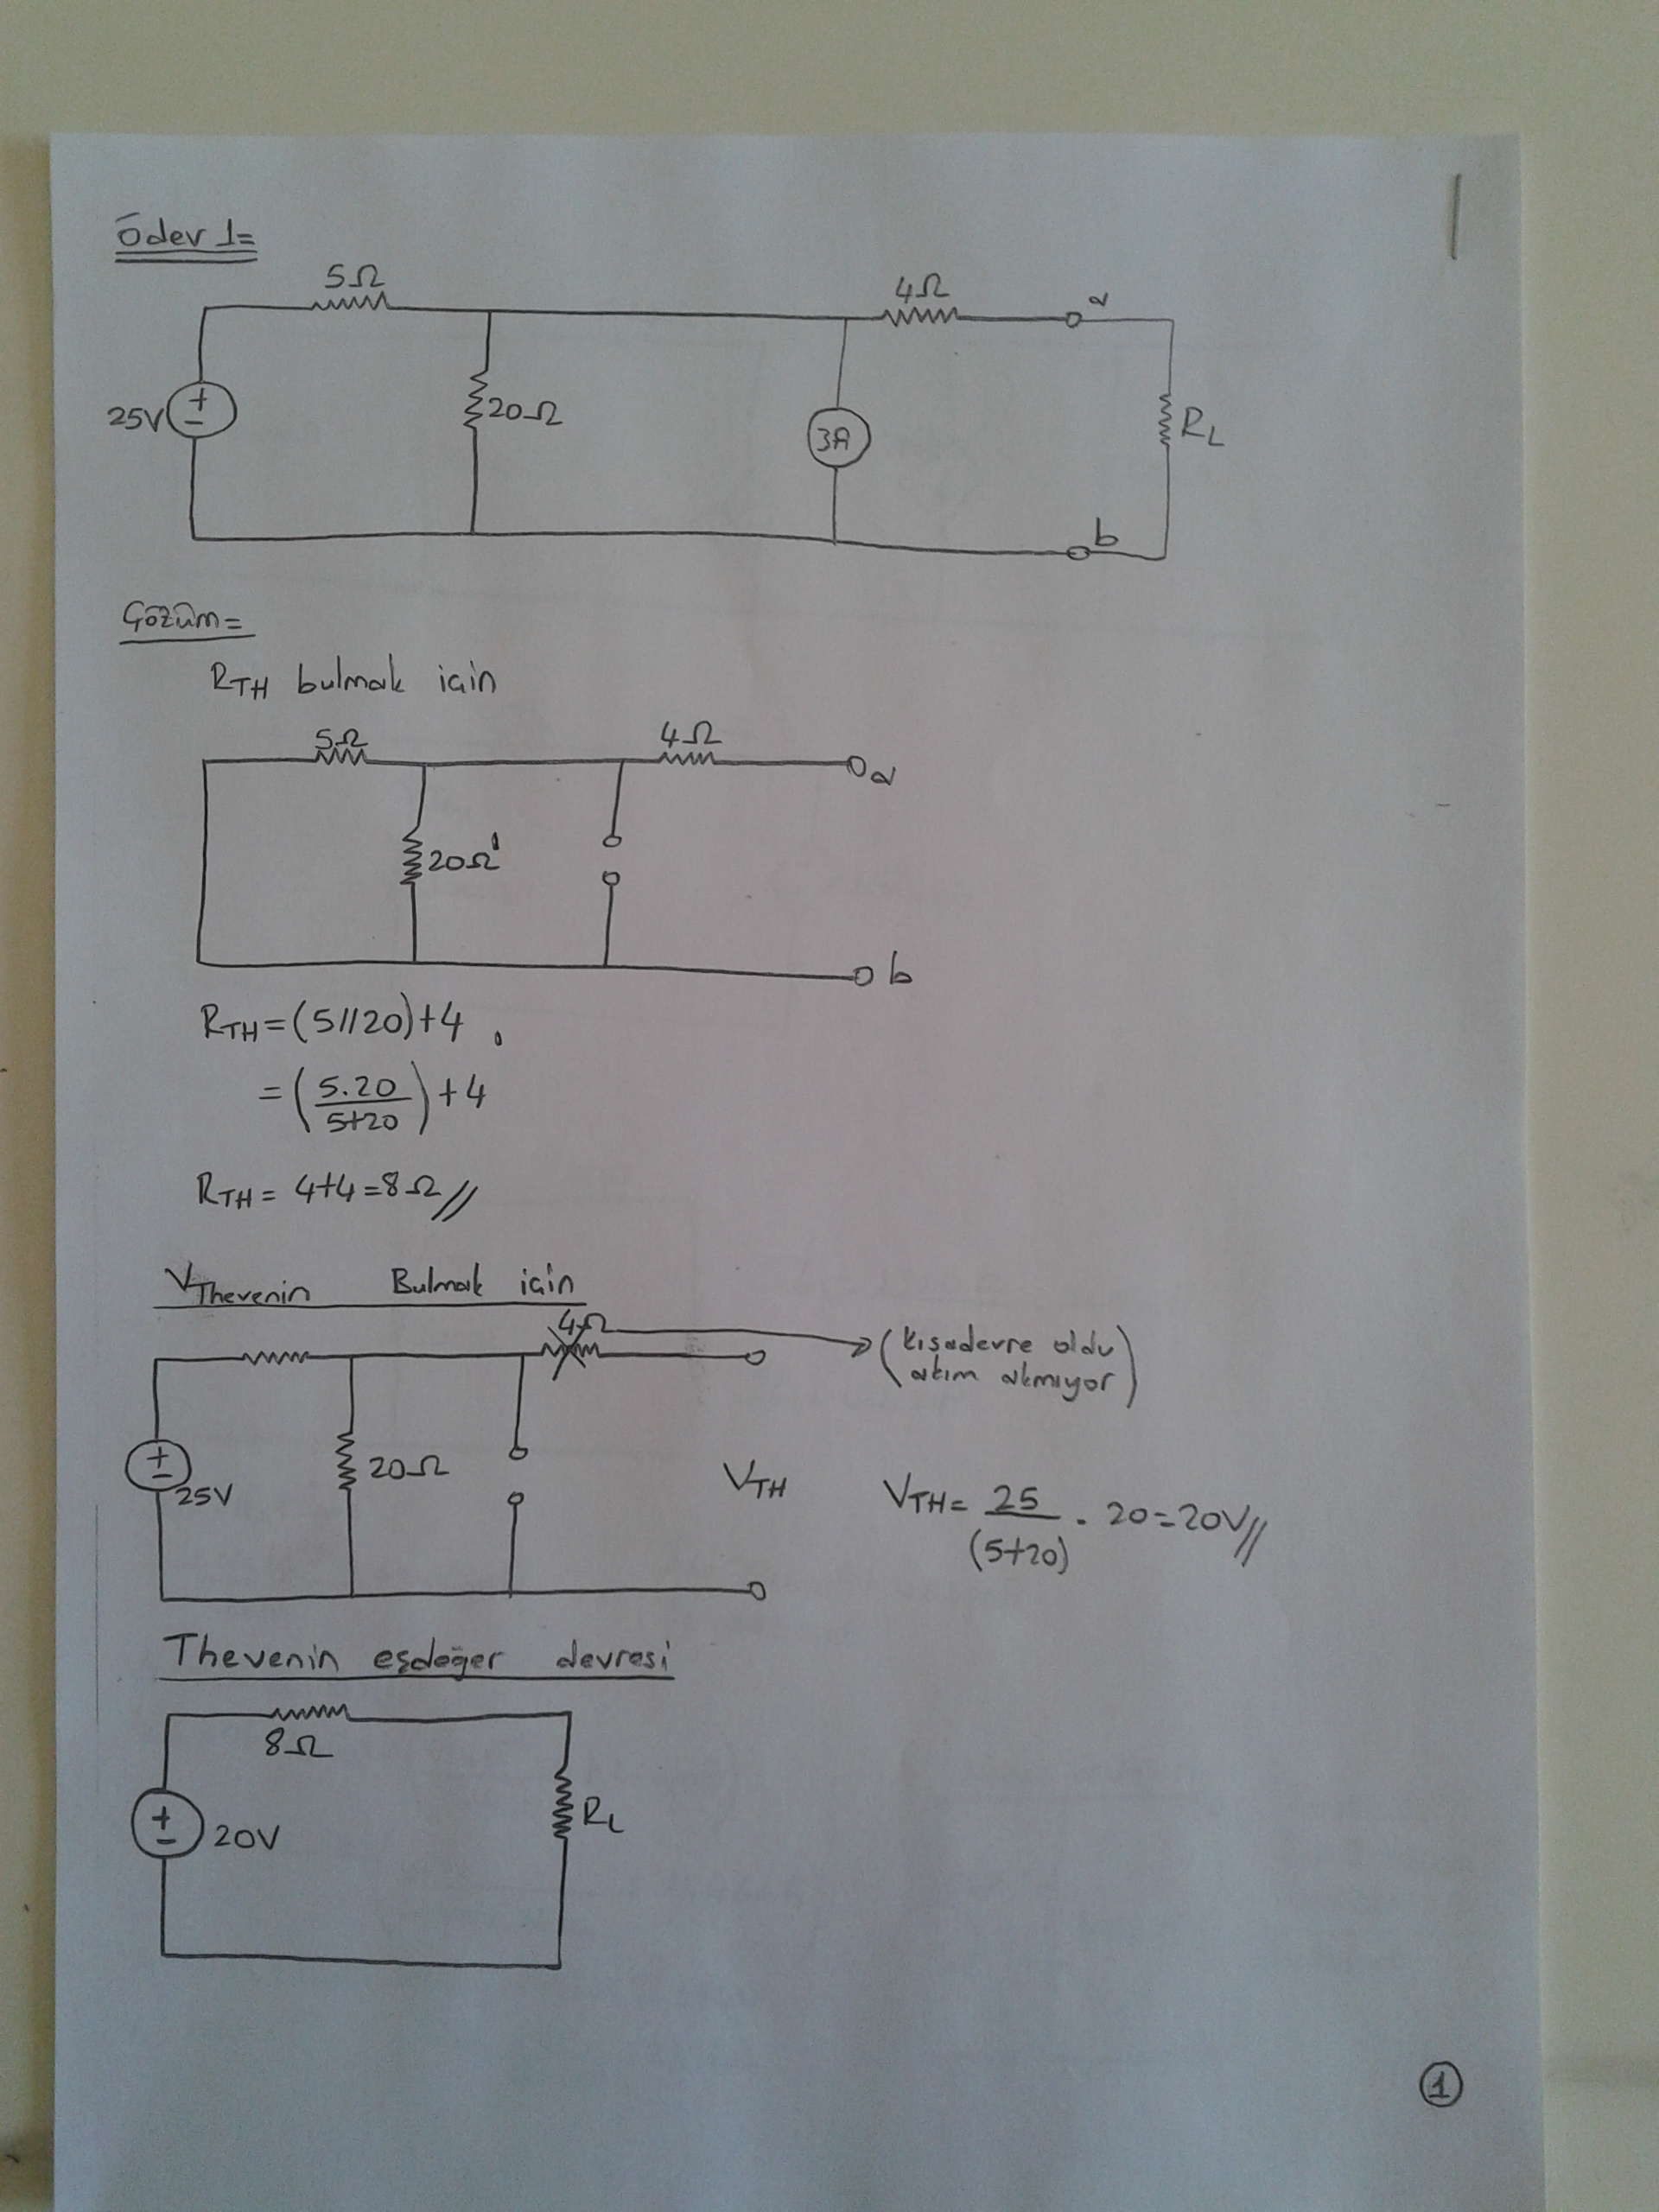 Ödev 1=
5Ω
4Ω
a
25V
20Ω
3A
RL
b
Çözüm=
RTH bulmak için
5Ω
4Ω
a
20Ω
b
RTH=(5//20)+4
=(5.20/5+20)+4
RTH= 4+4=8Ω//
VThevenin Bulmak için
4Ω
(kısadevre oldu
akım akmıyor)
20Ω
25V
VTH
VTH= 25/(5+20) . 20=20V//
Thevenin eşdeğer devresi
8Ω
20V
RL
1